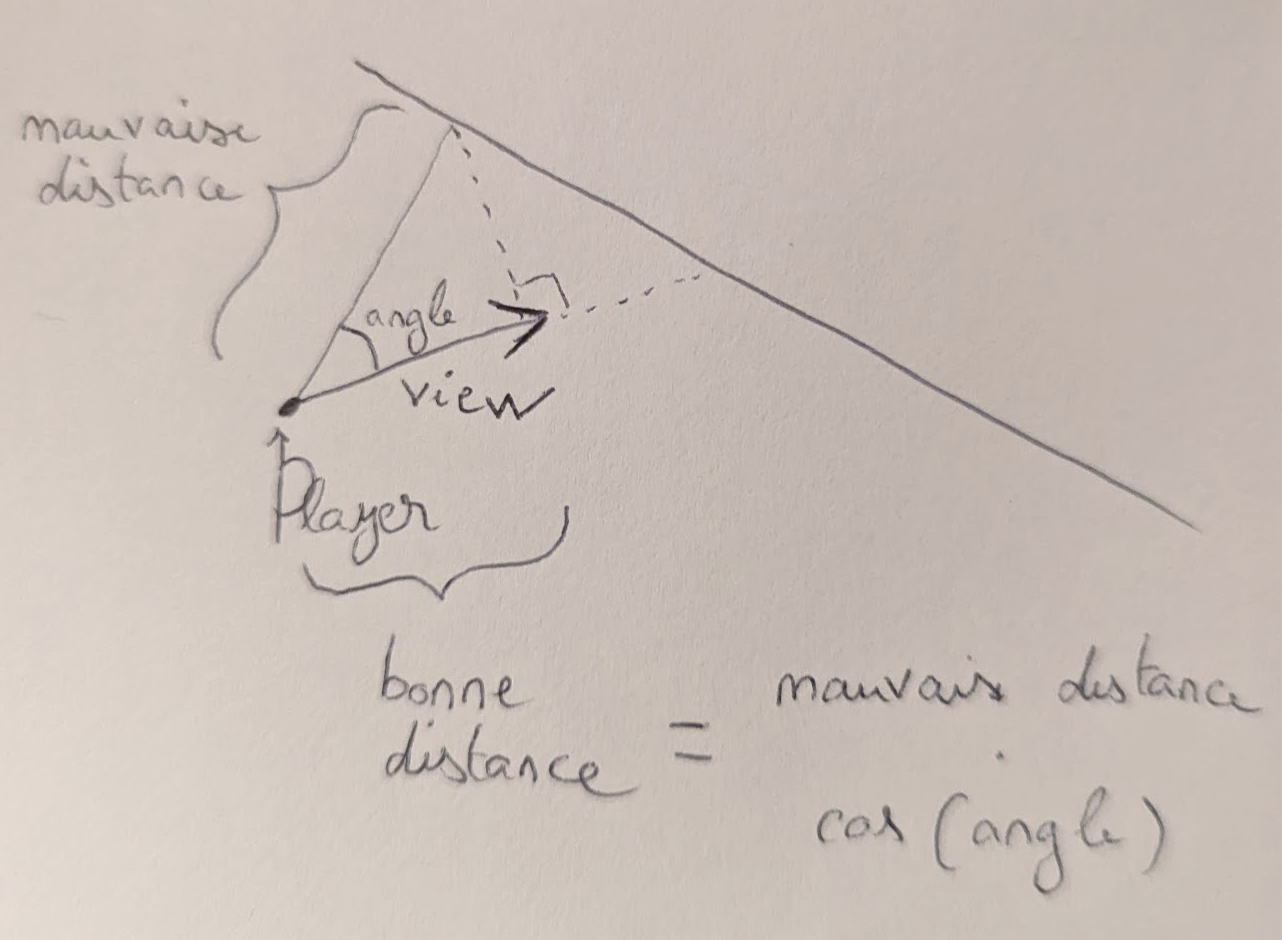 mauvaise
distance
angle
view
Player
bonne
distance
=
mauvais distance
.
cos (angle)